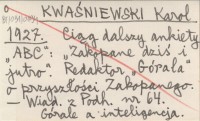 KWAŚNIEWSKI Karol
1927. Ciąg dalszy ankiety
„ABC": „Zakopane dziś i
jutro". Redaktor „Górala"
o przyszłości Zakopanego.
— Wiad. z Podh. nr 64.
Górale a inteligencja.